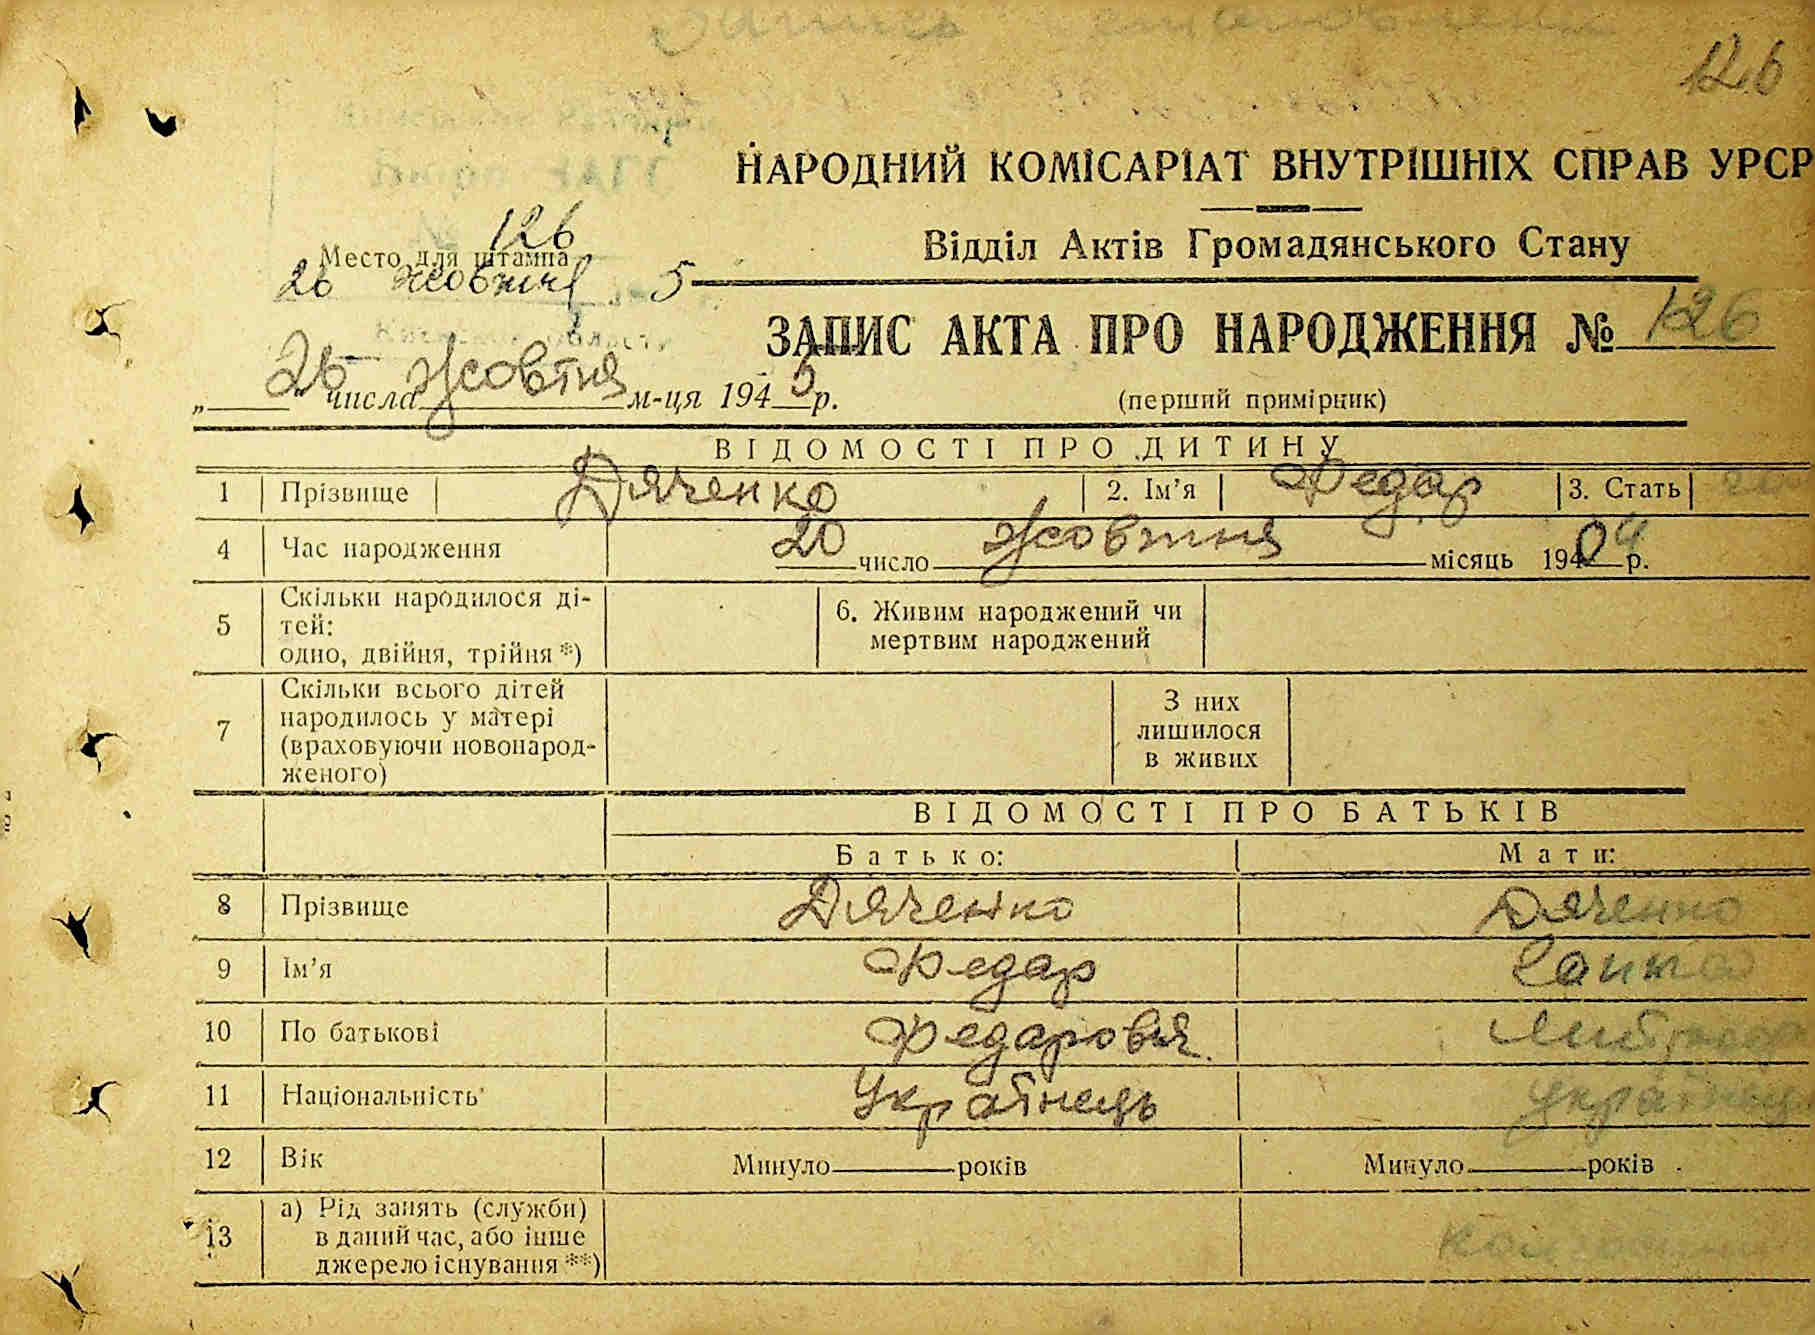 126
НАРОДНИЙ КОМІСАРІАТ ВНУТРІШНІХ СПРАВ УРСР
Відділ Актів Громадянського Стану
126
Место для штампа
26 жовтня 5
ЗАПИС АКТА ПРО НАРОДЖЕННЯ № 126
„26" числа Жовтня м-ця 1945 р.
(перший примірник)
ВІДОМОСТІ ПРО ДИТИНУ
1 Прізвище Дяченко 2. Ім'я Федар 3. Стать
4 Час народження 20 число Жовтня місяць 1904 р.
5 Скільки народилося ді-
тей:
одно, двійня, трійня *)
6. Живим народжений чи
мертвим народжений
7 Скільки всього дітей
народилось у матері
(враховуючи новонарод-
женого)
З них
лишилося
в живих
ВІДОМОСТІ ПРО БАТЬКІВ
Батько: Мати:
8 Прізвище Дяченко Дяченко
9 Ім'я Федар
10 По батькові Федарович
11 Національність Українець українець
12 Вік Минуло років Минуло років
13 а) Рід занять (служби)
в даний час, або інше
джерело існування **)